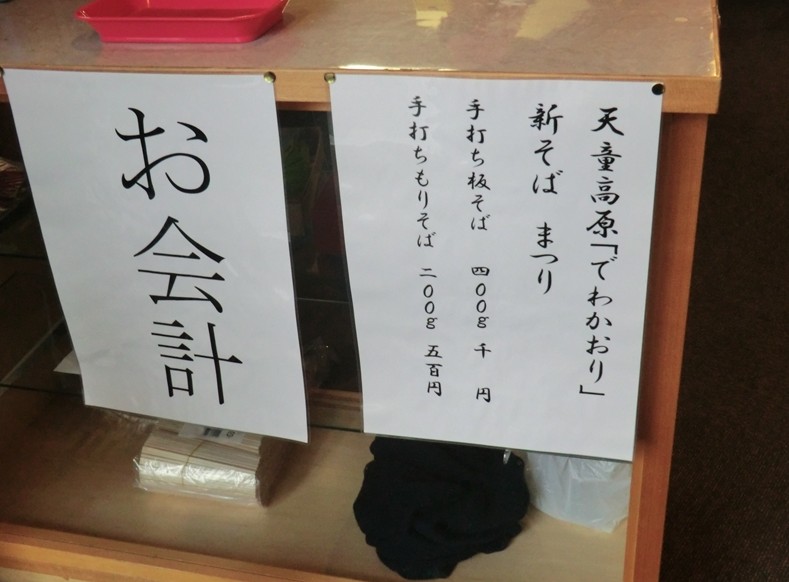 天童高原「でわかおり」
新そば　まつり
手打ち板そば　四00g　千　円
手打ちもりそば　二00g　五百円
お会計